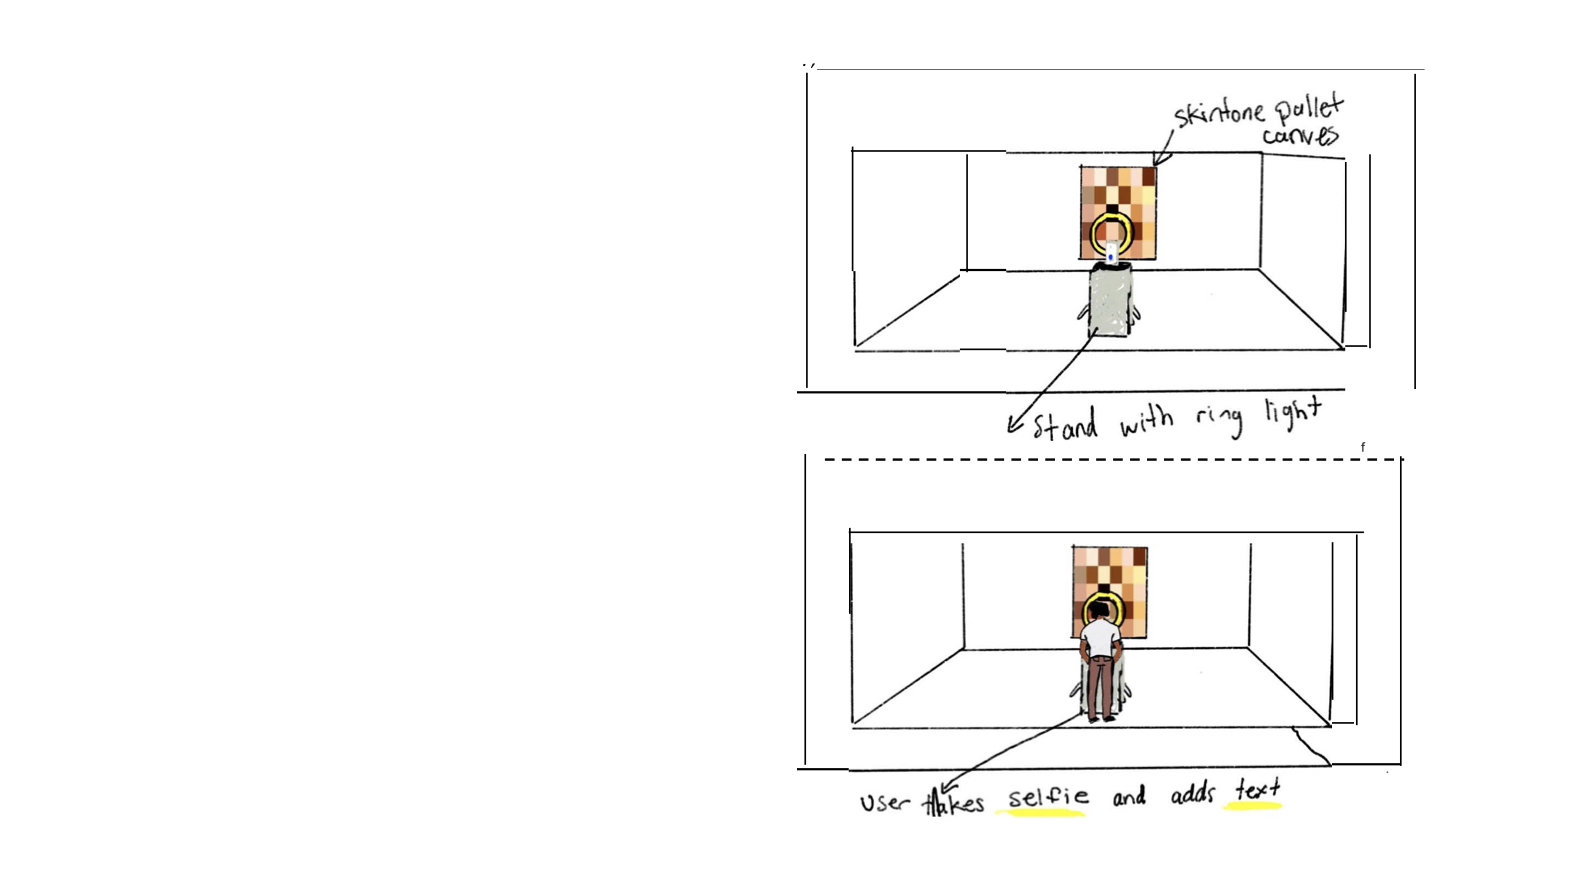 skintone pallet
canves
Stand with ring light
f
user takes selfie and adds text